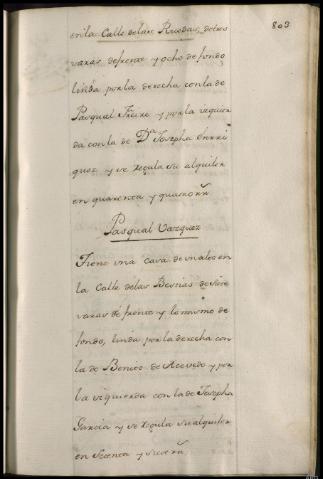 803
en la Calle de las Ruedas, de tres
varas de frente y ocho de fondo
linda por la derecha con la de
Pasqual Freire y por la izquier
da con la de Dª Josepha Enrri
quez y se regula su alquiler
en quarenta y quatro rr.
Pasqual Vazquez
Tiene una casa de un alto en
la Calle de las Bestias de siete
varas de frente y lo mismo de
fondo, linda por la derecha con
la de Benito de Acevedo y por
la izquierda con la de Josepha
Garcia y se regula su alquiler
en sesenta y seis rr.